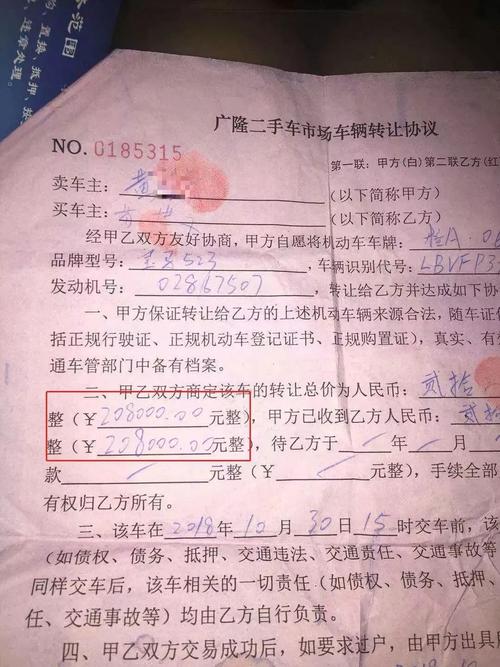 范围
、置换、抵押、按
、违章处理。
广隆二手车市场车辆转让协议
NO. 0185315
第一联：甲方(白)第二联乙方(红
卖车主：黄 （以下简称甲方）
买车主： （以下简称乙方）
经甲乙双方友好协商，甲方自愿将机动车车牌：桂A·06
品牌型号：宝马523，车辆识别代号：LBVFP3
发动机号：02867507，转让给乙方并达成如下协
一、甲方保证转让给乙方的上述机动车辆来源合法，随车证件
括正规行驶证、正规机动车登记证书、正规购置证），真实、有效
通车管部门中备有档案。
二、甲乙双方商定该车的转让总价为人民币：贰拾
整（￥208000.00元整），甲方已收到乙方人民币：贰拾
整（￥208000.00元整），待乙方于／年／月
款／元整（￥／元整），手续全部
有权归乙方所有。
三、该车在2018年10月30日15时交车前，该
（如债权、债务、抵押、交通违法、交通责任、交通事故等
同样交车后，该车相关的一切责任（如债权、债务、抵押、
任、交通事故等）均由乙方自行负责。
四、甲乙双方交易成功后，如要求过户，由甲方出具